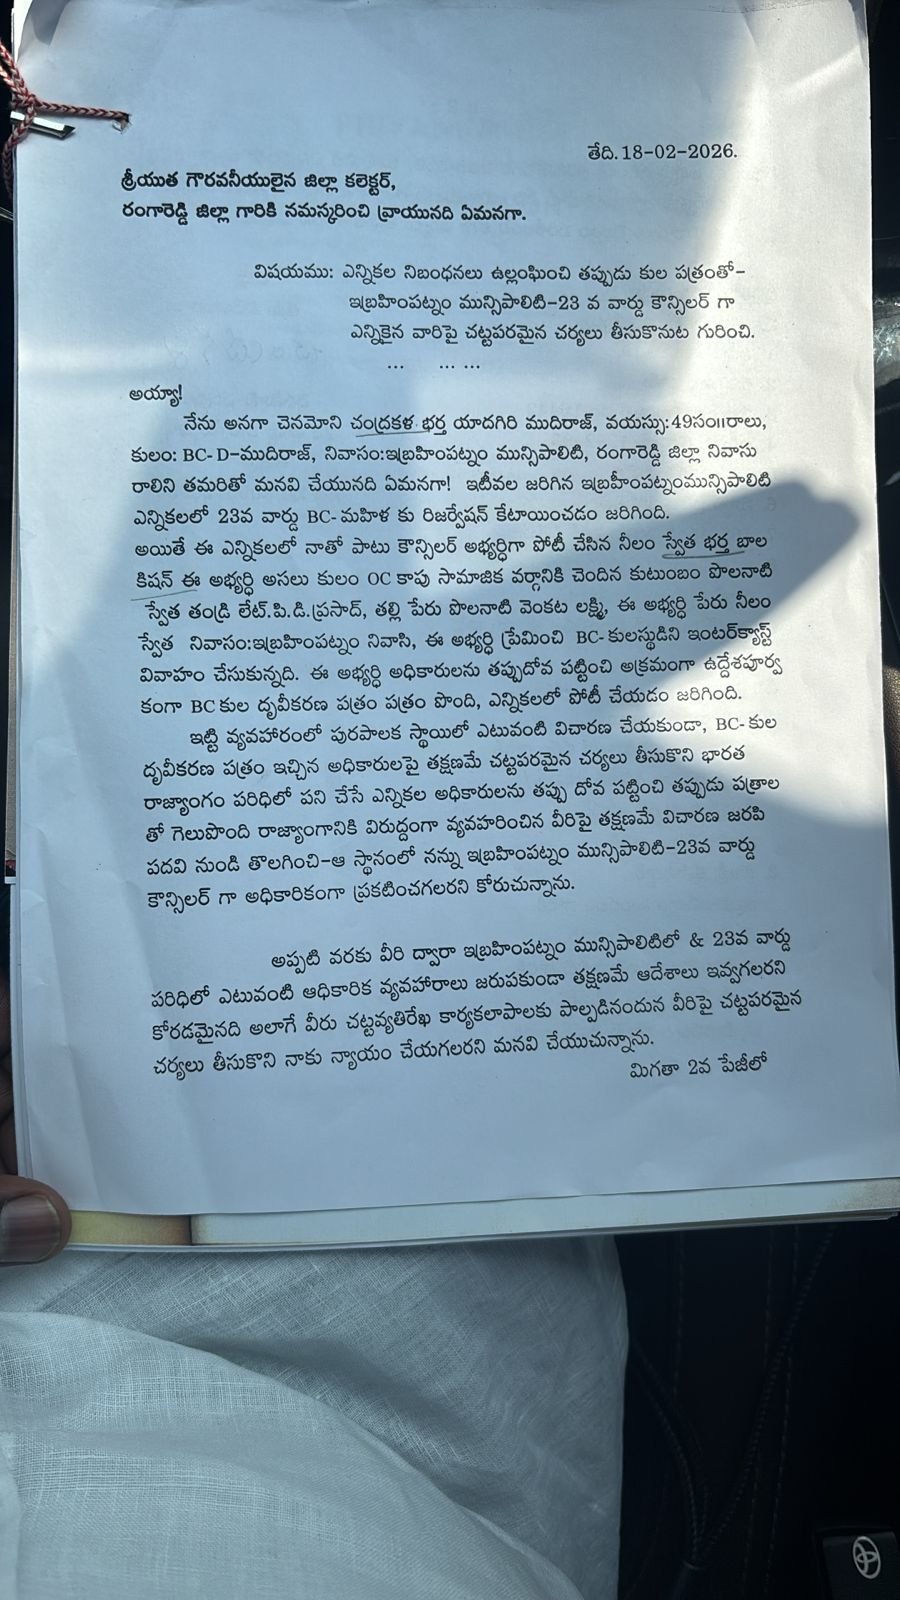 తేది.18-02-2026.
శ్రీయుత గౌరవనీయులైన జిల్లా కలెక్టర్,
రంగారెడ్డి జిల్లా గారికి నమస్కరించి వ్రాయునది ఏమనగా.
విషయము: ఎన్నికల నిబంధనలు ఉల్లంఘించి తప్పుడు కుల పత్రంతో-
ఇబ్రహింపట్నం మున్సిపాలిటి-23 వ వార్డు కౌన్సిలర్ గా
ఎన్నికైన వారిపై చట్టపరమైన చర్యలు తీసుకొనుట గురించి.
... ... ...
అయ్యా!
నేను అనగా చెనమోని చంద్రకళ భర్త యాదగిరి ముదిరాజ్, వయస్సు:49సం॥రాలు,
కులం: BC-D-ముదిరాజ్, నివాసం:ఇబ్రహింపట్నం మున్సిపాలిటి, రంగారెడ్డి జిల్లా నివాసు
రాలిని తమరితో మనవి చేయునది ఏమనగా! ఇటీవల జరిగిన ఇబ్రహీంపట్నంమున్సిపాలిటి
ఎన్నికలలో 23వ వార్డు BC-మహిళ కు రిజర్వేషన్ కేటాయించడం జరిగింది.
అయితే ఈ ఎన్నికలలో నాతో పాటు కౌన్సిలర్ అభ్యర్థిగా పోటీ చేసిన నీలం స్వేత భర్త బాల
కిషన్ ఈ అభ్యర్ధి అసలు కులం OC కాపు సామాజిక వర్గానికి చెందిన కుటుంబం పొలనాటి
స్వేత తండ్రి లేట్.పి.డి.ప్రసాద్, తల్లి పేరు పొలనాటి వెంకట లక్ష్మి, ఈ అభ్యర్ధి పేరు నీలం
స్వేత నివాసం:ఇబ్రహింపట్నం నివాసి, ఈ అభ్యర్ధి ప్రేమించి BC-కులస్థుడిని ఇంటర్‌క్యాస్ట్
వివాహం చేసుకున్నది. ఈ అభ్యర్ధి అధికారులను తప్పుదోవ పట్టించి అక్రమంగా ఉద్దేశపూర్వ
కంగా BC కుల దృవీకరణ పత్రం పత్రం పొంది, ఎన్నికలలో పోటీ చేయడం జరిగింది.
ఇట్టి వ్యవహారంలో పురపాలక స్థాయిలో ఎటువంటి విచారణ చేయకుండా, BC-కుల
దృవీకరణ పత్రం ఇచ్చిన అధికారులపై తక్షణమే చట్టపరమైన చర్యలు తీసుకొని భారత
రాజ్యాంగం పరిధిలో పని చేసే ఎన్నికల అధికారులను తప్పు దోవ పట్టించి తప్పుడు పత్రాల
తో గెలుపొంది రాజ్యాంగానికి విరుద్దంగా వ్యవహరించిన వీరిపై తక్షణమే విచారణ జరపి
పదవి నుండి తొలగించి-ఆ స్థానంలో నన్ను ఇబ్రహింపట్నం మున్సిపాలిటి-23వ వార్డు
కౌన్సిలర్ గా అధికారికంగా ప్రకటించగలరని కోరుచున్నాను.
అప్పటి వరకు వీరి ద్వారా ఇబ్రహింపట్నం మున్సిపాలిటిలో & 23వ వార్డు
పరిధిలో ఎటువంటి ఆధికారిక వ్యవహారాలు జరుపకుండా తక్షణమే ఆదేశాలు ఇవ్వగలరని
కోరడమైనది అలాగే వీరు చట్టవ్యతిరేఖ కార్యకలాపాలకు పాల్పడినందున వీరిపై చట్టపరమైన
చర్యలు తీసుకొని నాకు న్యాయం చేయగలరని మనవి చేయుచున్నాను.
మిగతా 2వ పేజీలో